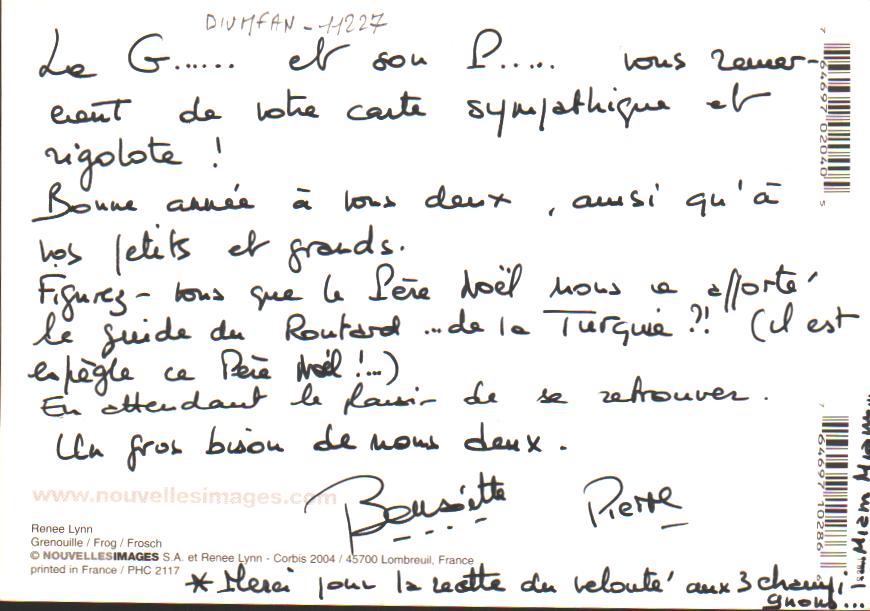 DIVMFAN-11227
La G...... et son P..... vous remer-
cient de votre carte sympathique et
rigolote !
Bonne année à vous deux, ainsi qu'à
vos petits et grands.
Figurez-vous que le Père Noël nous a apporté
le guide du Routard ...de la Turquie ?! (il est
espiègle ce Père Noël !...)
En attendant le plaisir de se retrouver.
Un gros bison de nous deux.
Pierre
www.nouvellesimages.com
Renee Lynn
Grenouille / Frog / Frosch
© NOUVELLESIMAGES S.A. et Renee Lynn - Corbis 2004 / 45700 Lombreuil, France
printed in France / PHC 2117
* Merci pour la recette du velouté aux 3 champi-
gnons...
Miam Miam...
7 64697 02040 5
7 64697 10286 6